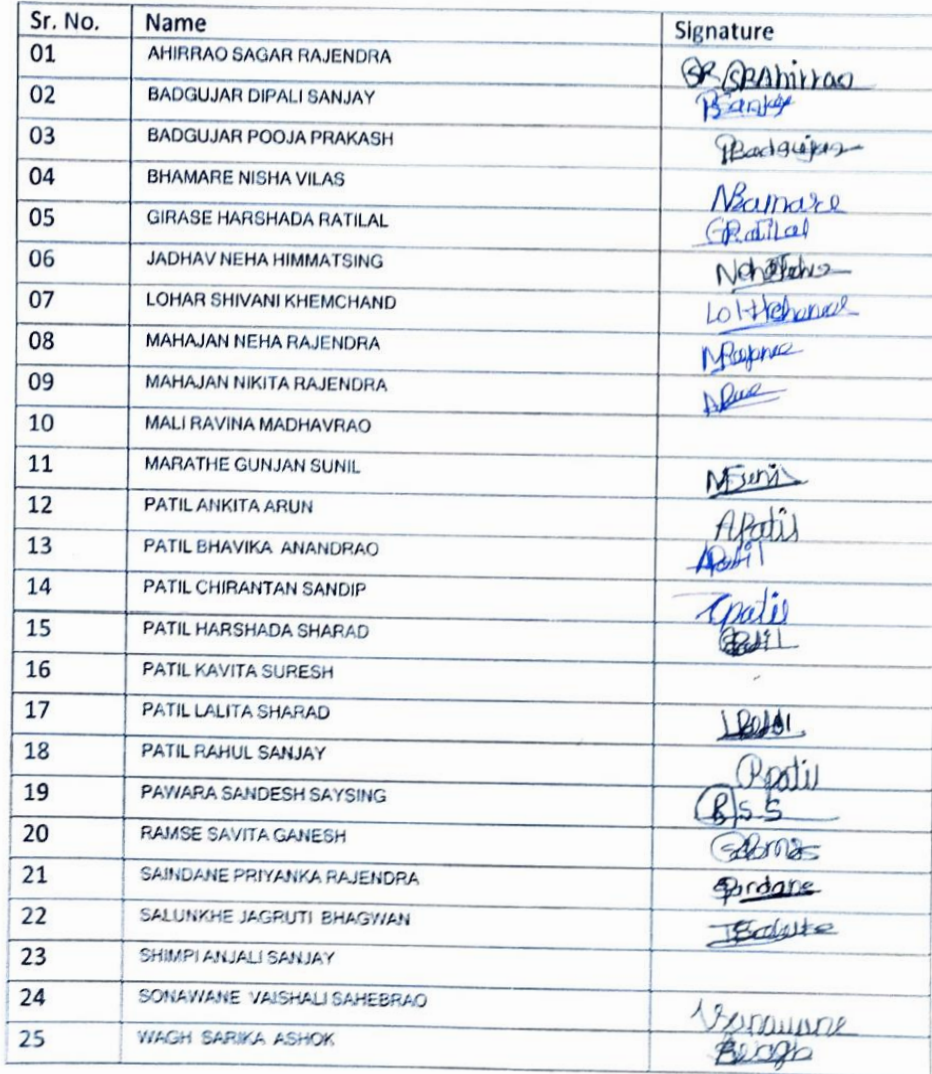 Sr. No. Name Signature
01 AHIRRAO SAGAR RAJENDRA SRAhirrao
02 BADGUJAR DIPALI SANJAY
03 BADGUJAR POOJA PRAKASH PBadgujar
04 BHAMARE NISHA VILAS
05 GIRASE HARSHADA RATILAL GRatilal
06 JADHAV NEHA HIMMATSING
07 LOHAR SHIVANI KHEMCHAND
08 MAHAJAN NEHA RAJENDRA
09 MAHAJAN NIKITA RAJENDRA
10 MALI RAVINA MADHAVRAO
11 MARATHE GUNJAN SUNIL
12 PATIL ANKITA ARUN APatil
13 PATIL BHAVIKA ANANDRAO APatil
14 PATIL CHIRANTAN SANDIP Cpatil
15 PATIL HARSHADA SHARAD
16 PATIL KAVITA SURESH
17 PATIL LALITA SHARAD
18 PATIL RAHUL SANJAY Rpatil
19 PAWARA SANDESH SAYSING
20 RAMSE SAVITA GANESH
21 SAINDANE PRIYANKA RAJENDRA
22 SALUNKHE JAGRUTI BHAGWAN
23 SHIMPI ANJALI SANJAY
24 SONAWANE VAISHALI SAHEBRAO
25 WAGH SARIKA ASHOK